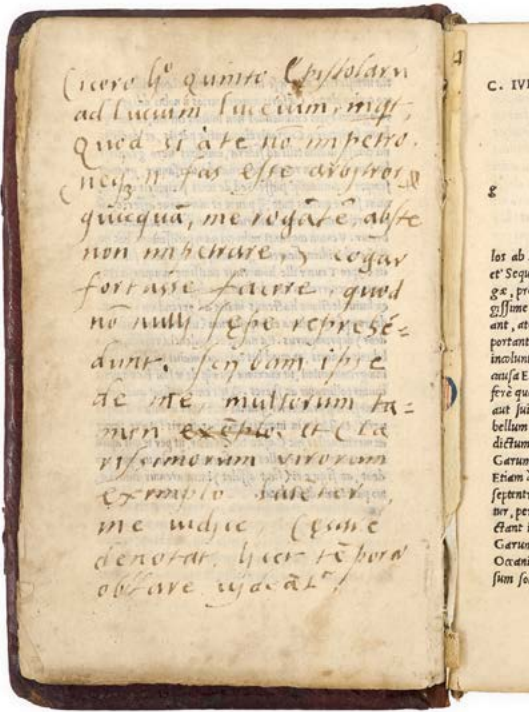 Cicero li.º quinto Epistolarū
ad lucium lucceium, inqt,
Quod si à te nō impetro.
neq₃ n̄ fas esse arbitror
quicquā, me rogātē, abste
non impetrare, cogar
fortasse facere, quod
nō nulli sępe represē=
dunt. scribam ipse
de me, multorum ta=
men exēplo, et cla
rissimorum virorum
exemplo
me iudice Cęsarē
denotat, licet tēpora
obstare
C. IVL
g
los ab
et Sequ
gæ, pro
gissime
ant, at
portant
incolunt
causa E
fere quo
aut sui
bellum
dictum
Garum
Etiam
septentr
tur, per
ctant i
Garum
Oceani
sum